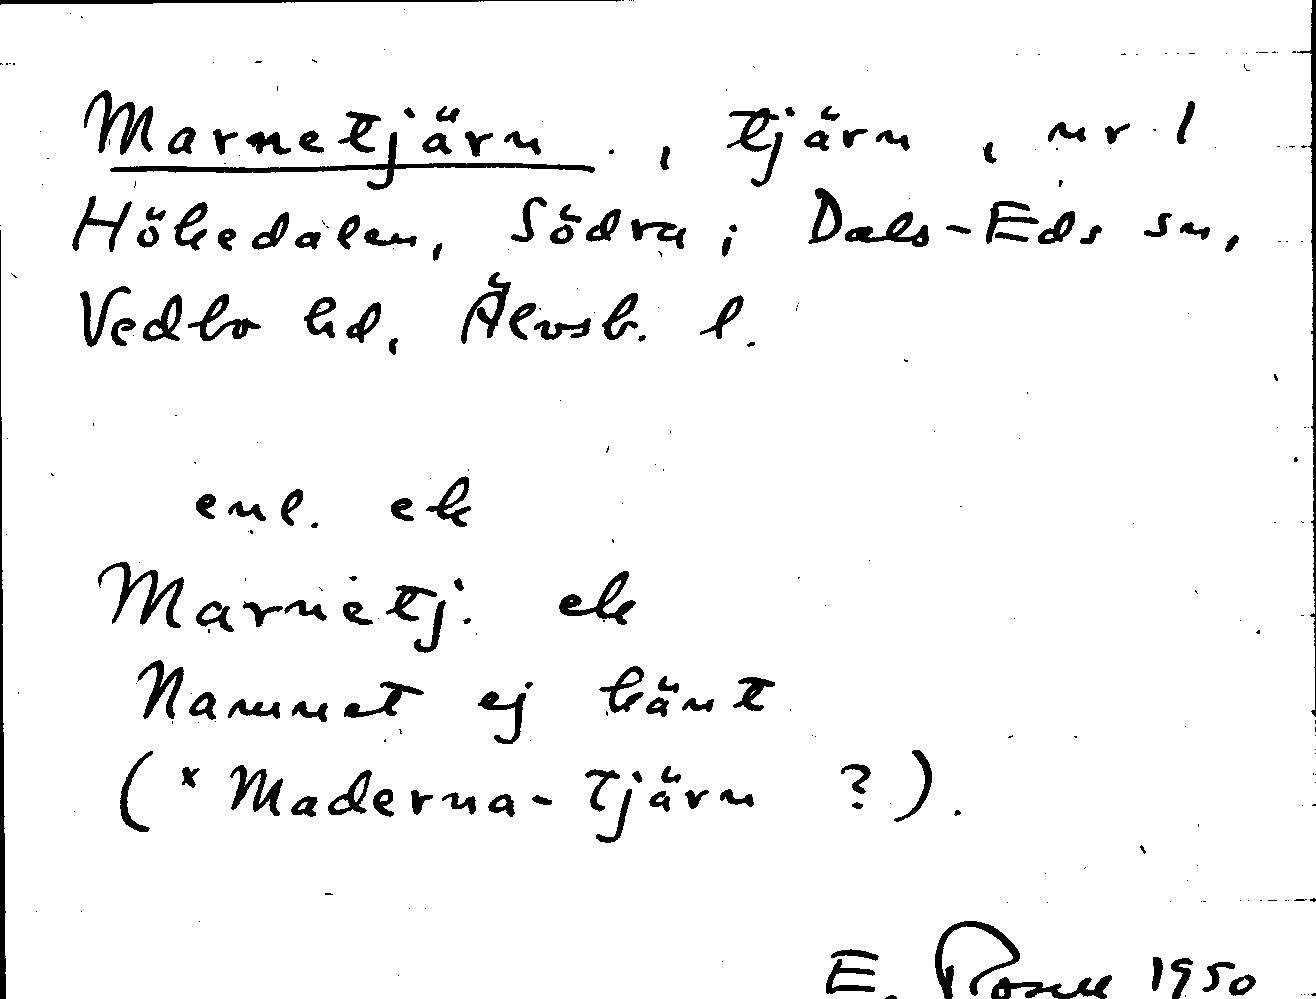 Marnetjärn, tjärn, nr 1
Hökedalen, Södra i Dals-Eds sn,
Vedbo hd, Älvsb. l.
enl. ek
Marnetj. ek
Namnet ej känt
(* Maderna-tjärn ?).
E. Rosell 1950